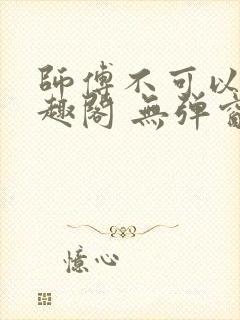 師傅不可以
趣閣 無彈窗
憶心